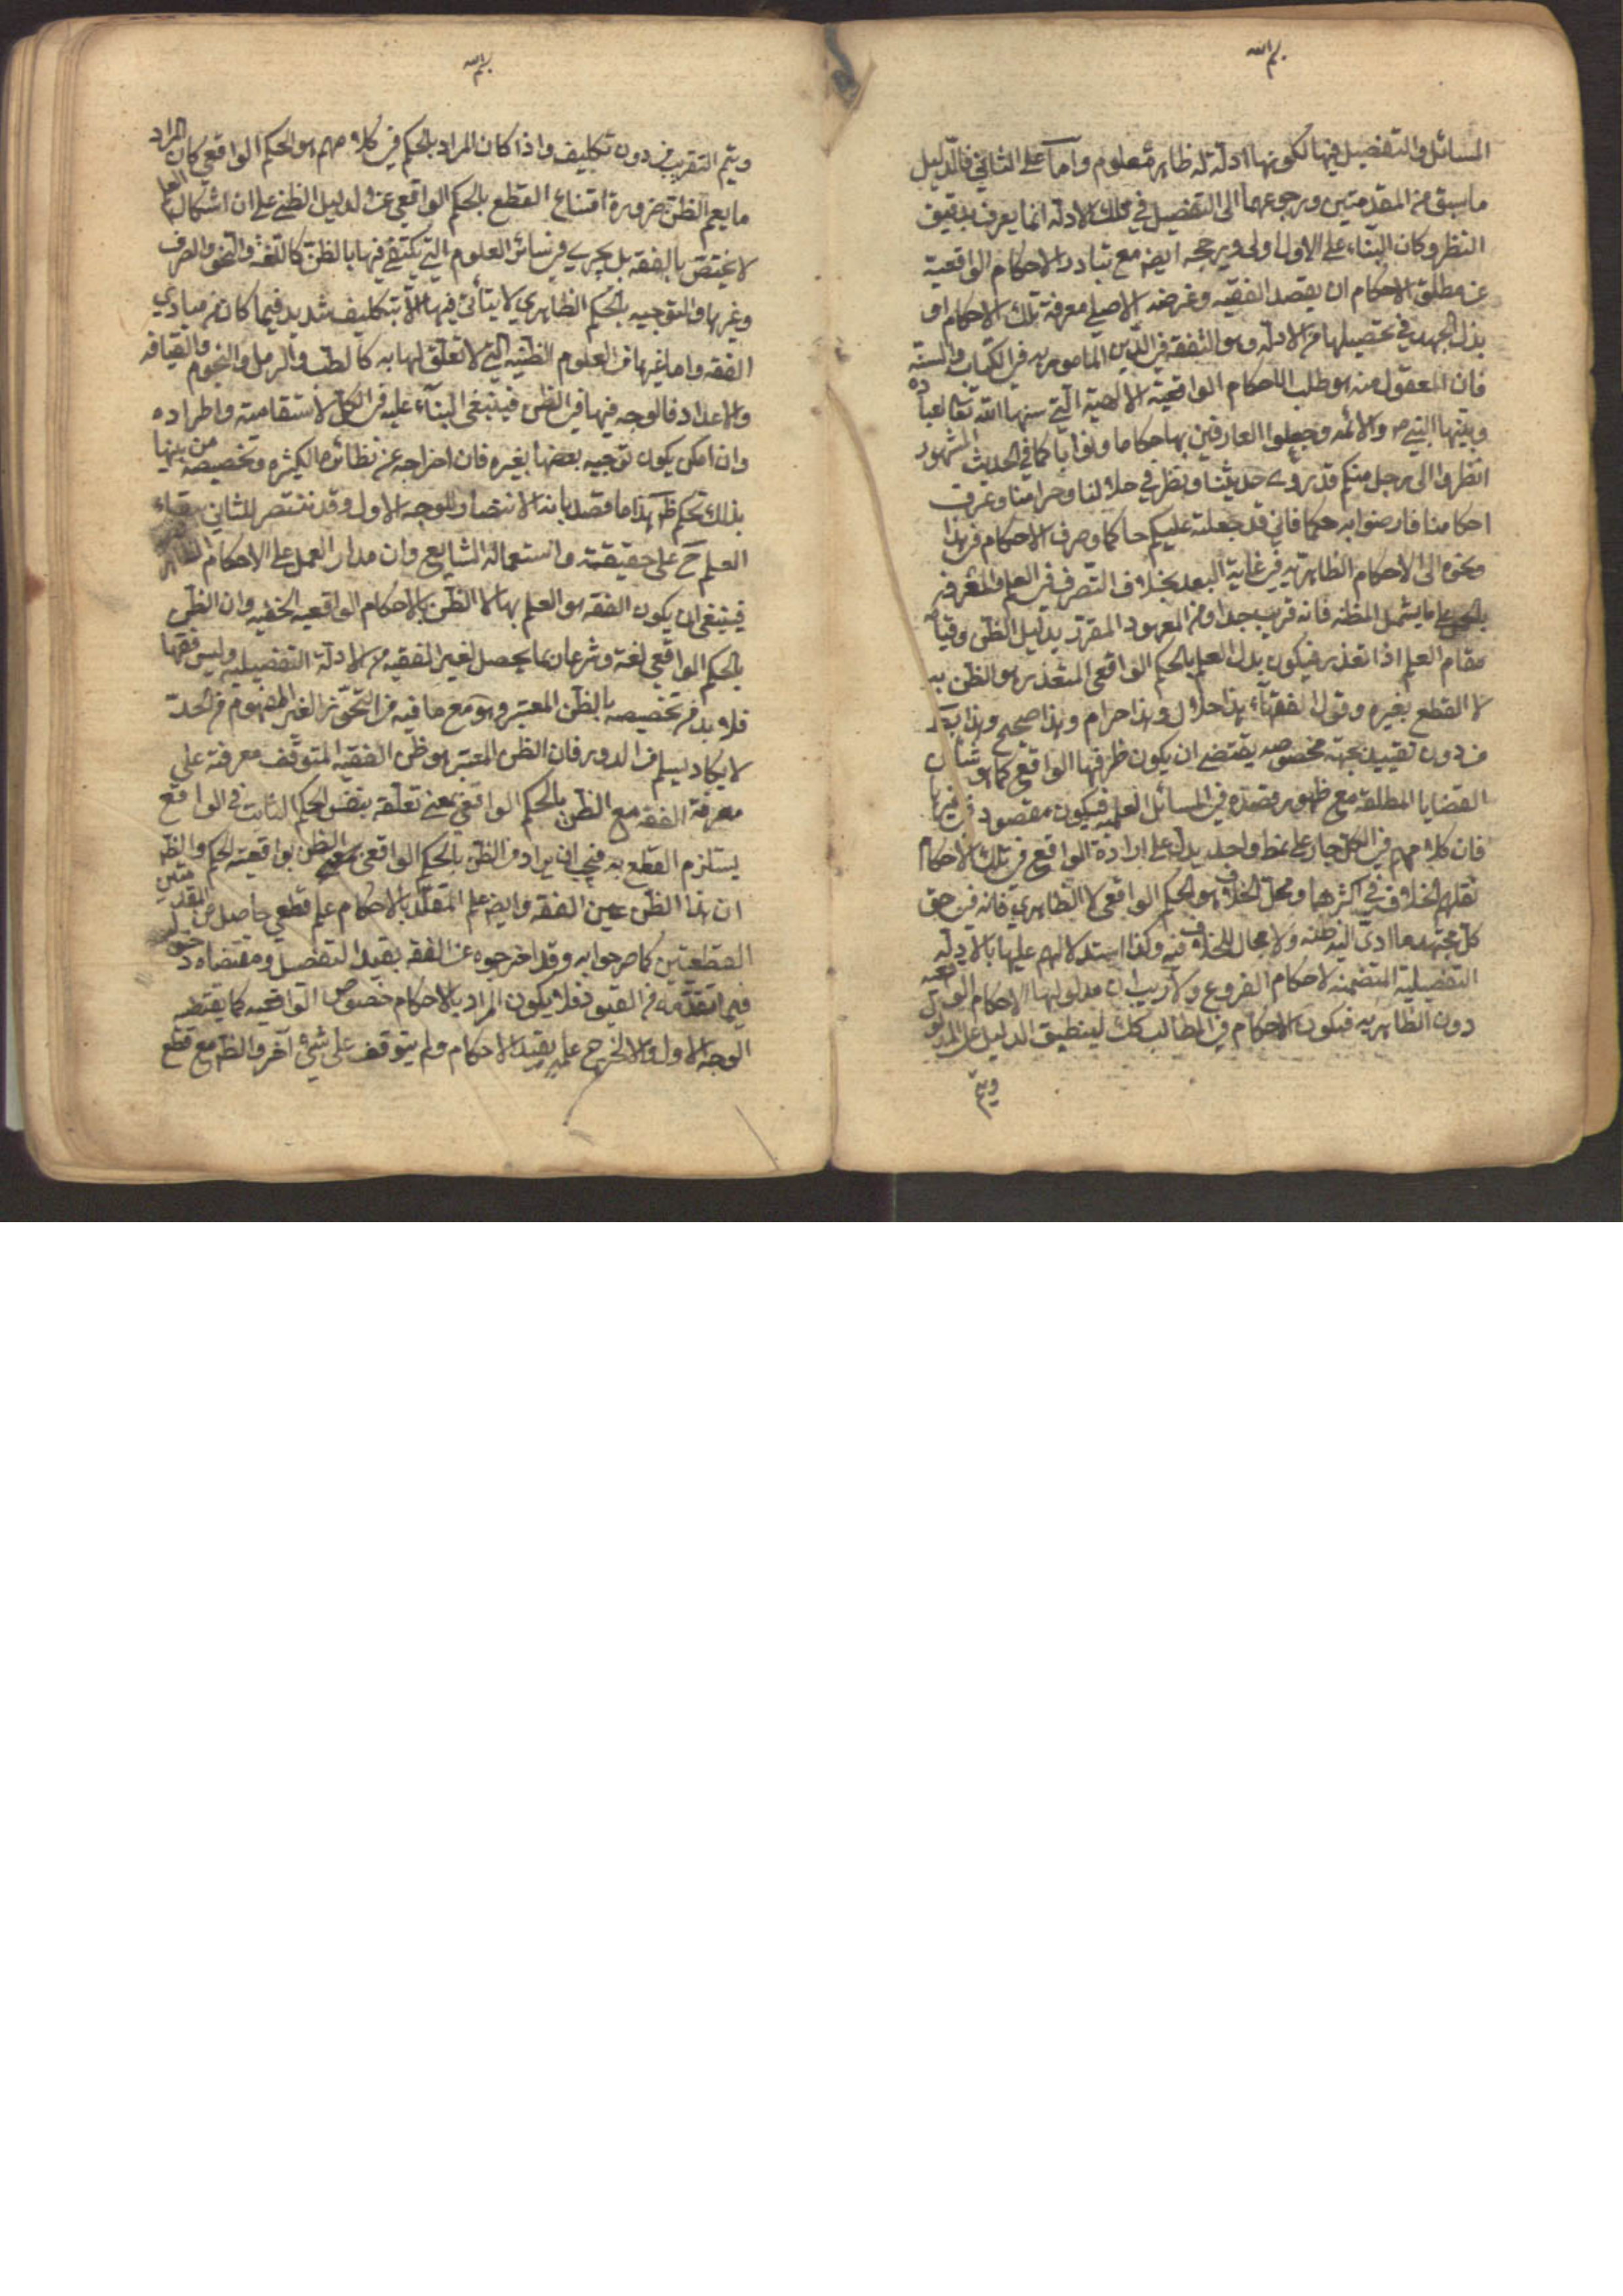 بسم الله
المسائل والتفصيل فيها لكونها ادلة له ظاهر معلوم واما على الثاني فالدليل
ما سبق من المقدمتين ورجوعهما الى التفصيل في تلك الادلة انما يعرف بدقيق
النظر وكان البناء على الاول اولى ويرجحه ايضا مع تبادر الاحكام الواقعية
عن مطلق الاحكام ان يقصد الفقيه وغرضه الاصلي معرفة تلك الاحكام او
بذل الجهد في تحصيلها من الادلة وهو التفقه في الدين المامور به في الكتاب والسنة
فان المعقول منه هو طلب الاحكام الواقعية الالهية التي سنها الله تعالى لعباده
وبينها النبي ص والائمة وجعلوا العارفين بها حكاما ونوابا كما في الحديث المشهور
انظروا الى رجل منكم قد روى حديثنا ونظر في حلالنا وحرامنا وعرف
احكامنا فارضوا به حكما فاني قد جعلته عليكم حاكما وصرف الاحكام في هذا
ونحوه الى الاحكام الظاهرية في غاية البعد بخلاف التصرف في العلم والمعرفة
بالحمل على ما يشمل المظنة فانه قريب جدا ومن المعهود المقرر بدليل الظن وقيامه
مقام العلم اذا تعذر فيكون بدل العلم بالحكم الواقعي المتعذر هو الظن به
لا القطع بغيره وقول الفقهاء هذا حلال وهذا حرام وهذا صحيح وهذا بط
من دون تقييد بجهة مخصوصة يقتضي ان يكون ظرفها الواقع كما هو شان
القضايا المطلقة مع ظهور قصده في المسائل العلمية فيكون مقصود في غيرها
فان كلامهم في الكل جار على نمط واحد يدل على ارادة الواقع في تلك الاحكام
نقلهم الخلاف في اكثرها ومحل الخلاف هو الحكم الواقعي لا الظاهري فانه في حق
كل مجتهد ما ادى اليه ظنه ولا مجال للخلاف فيه وكذا استدلالهم عليها بالادلة
التفصيلية المتضمنة لاحكام الفروع ولا ريب ان مدلولها الاحكام الواقعية
دون الظاهرية فيكون الاحكام في المطالب كك لينطبق الدليل على المدلول
ويتم
بسم الله
ويتم التقريب من دون تكليف واذا كان المراد بالحكم في كلامهم هو الحكم الواقعي كان المراد
ما يعم الظن ضرورة امتناع القطع بالحكم الواقعي عن الدليل الظني على ان اشكال العلم
لا يختص بالفقه بل يجري في سائر العلوم التي يكتفى فيها بالظن كاللغة والنحو والصرف
وغيرها والتوجيه بالحكم الظاهري لا يتأتى فيها الا بتكليف شديد فيما كان من مبادي
الفقه واما غيرها من العلوم الظنية التي لا تعلق لها به كالطب والرمل والنجوم والقيافة
والاعداد فالوجه فيها في الظن فينبغي البناء عليه في الكل لاستقامته واطراده
وان امكن يكون توجيه بعضها بغيره فان اخراجه عن نظائره الكثيرة وتخصيصه من بينها
بذلك تحكم ظ هذا ما قصدنا به الانتصار للوجه الاول وقد ننتصر للثاني ببقاء
العلم ح على حقيقته واستعماله الشايع وان مدار العمل على الاحكام الظاهر
فينبغي ان يكون الفقه هو العلم بها لا الظن بالاحكام الواقعية الخفية وان الظن
بالحكم الواقعي لغة وشرعا ربما يحصل لغير الفقيه من الادلة التفصيلية وليس فقها
فلا بد من تخصيصه بالظن المعتبر وهو مع ما فيه من التجوز الغير المفهوم من الحد
لا يكاد يسلم من الدور فان الظن المعتبر هو ظن الفقيه المتوقف معرفته على
معرفة الفقه مع الظن بالحكم الواقعي بمعنى تعلقه بنفس الحكم الثابت في الواقع
يستلزم القطع به فيجب ان يرادف الظن بالحكم الواقعي الظن بواقعية الحكم والظ
ان هذا الظن عين الفقه وايضا علم المقلد بالاحكام علم قطعي حاصل من المقدمتين
القطعيتين كما صرحوا به وقد اخرجوه عن الفقه بقيد التفصيل ومقتضاه دخوله
فيما تقدمه من القيود فلا يكون المراد بالاحكام خصوص الواقعية كما يقتضيه
الوجه الاول والا لخرج علمه بقيد الاحكام ولم يتوقف على شيء آخر والظ مع قطع